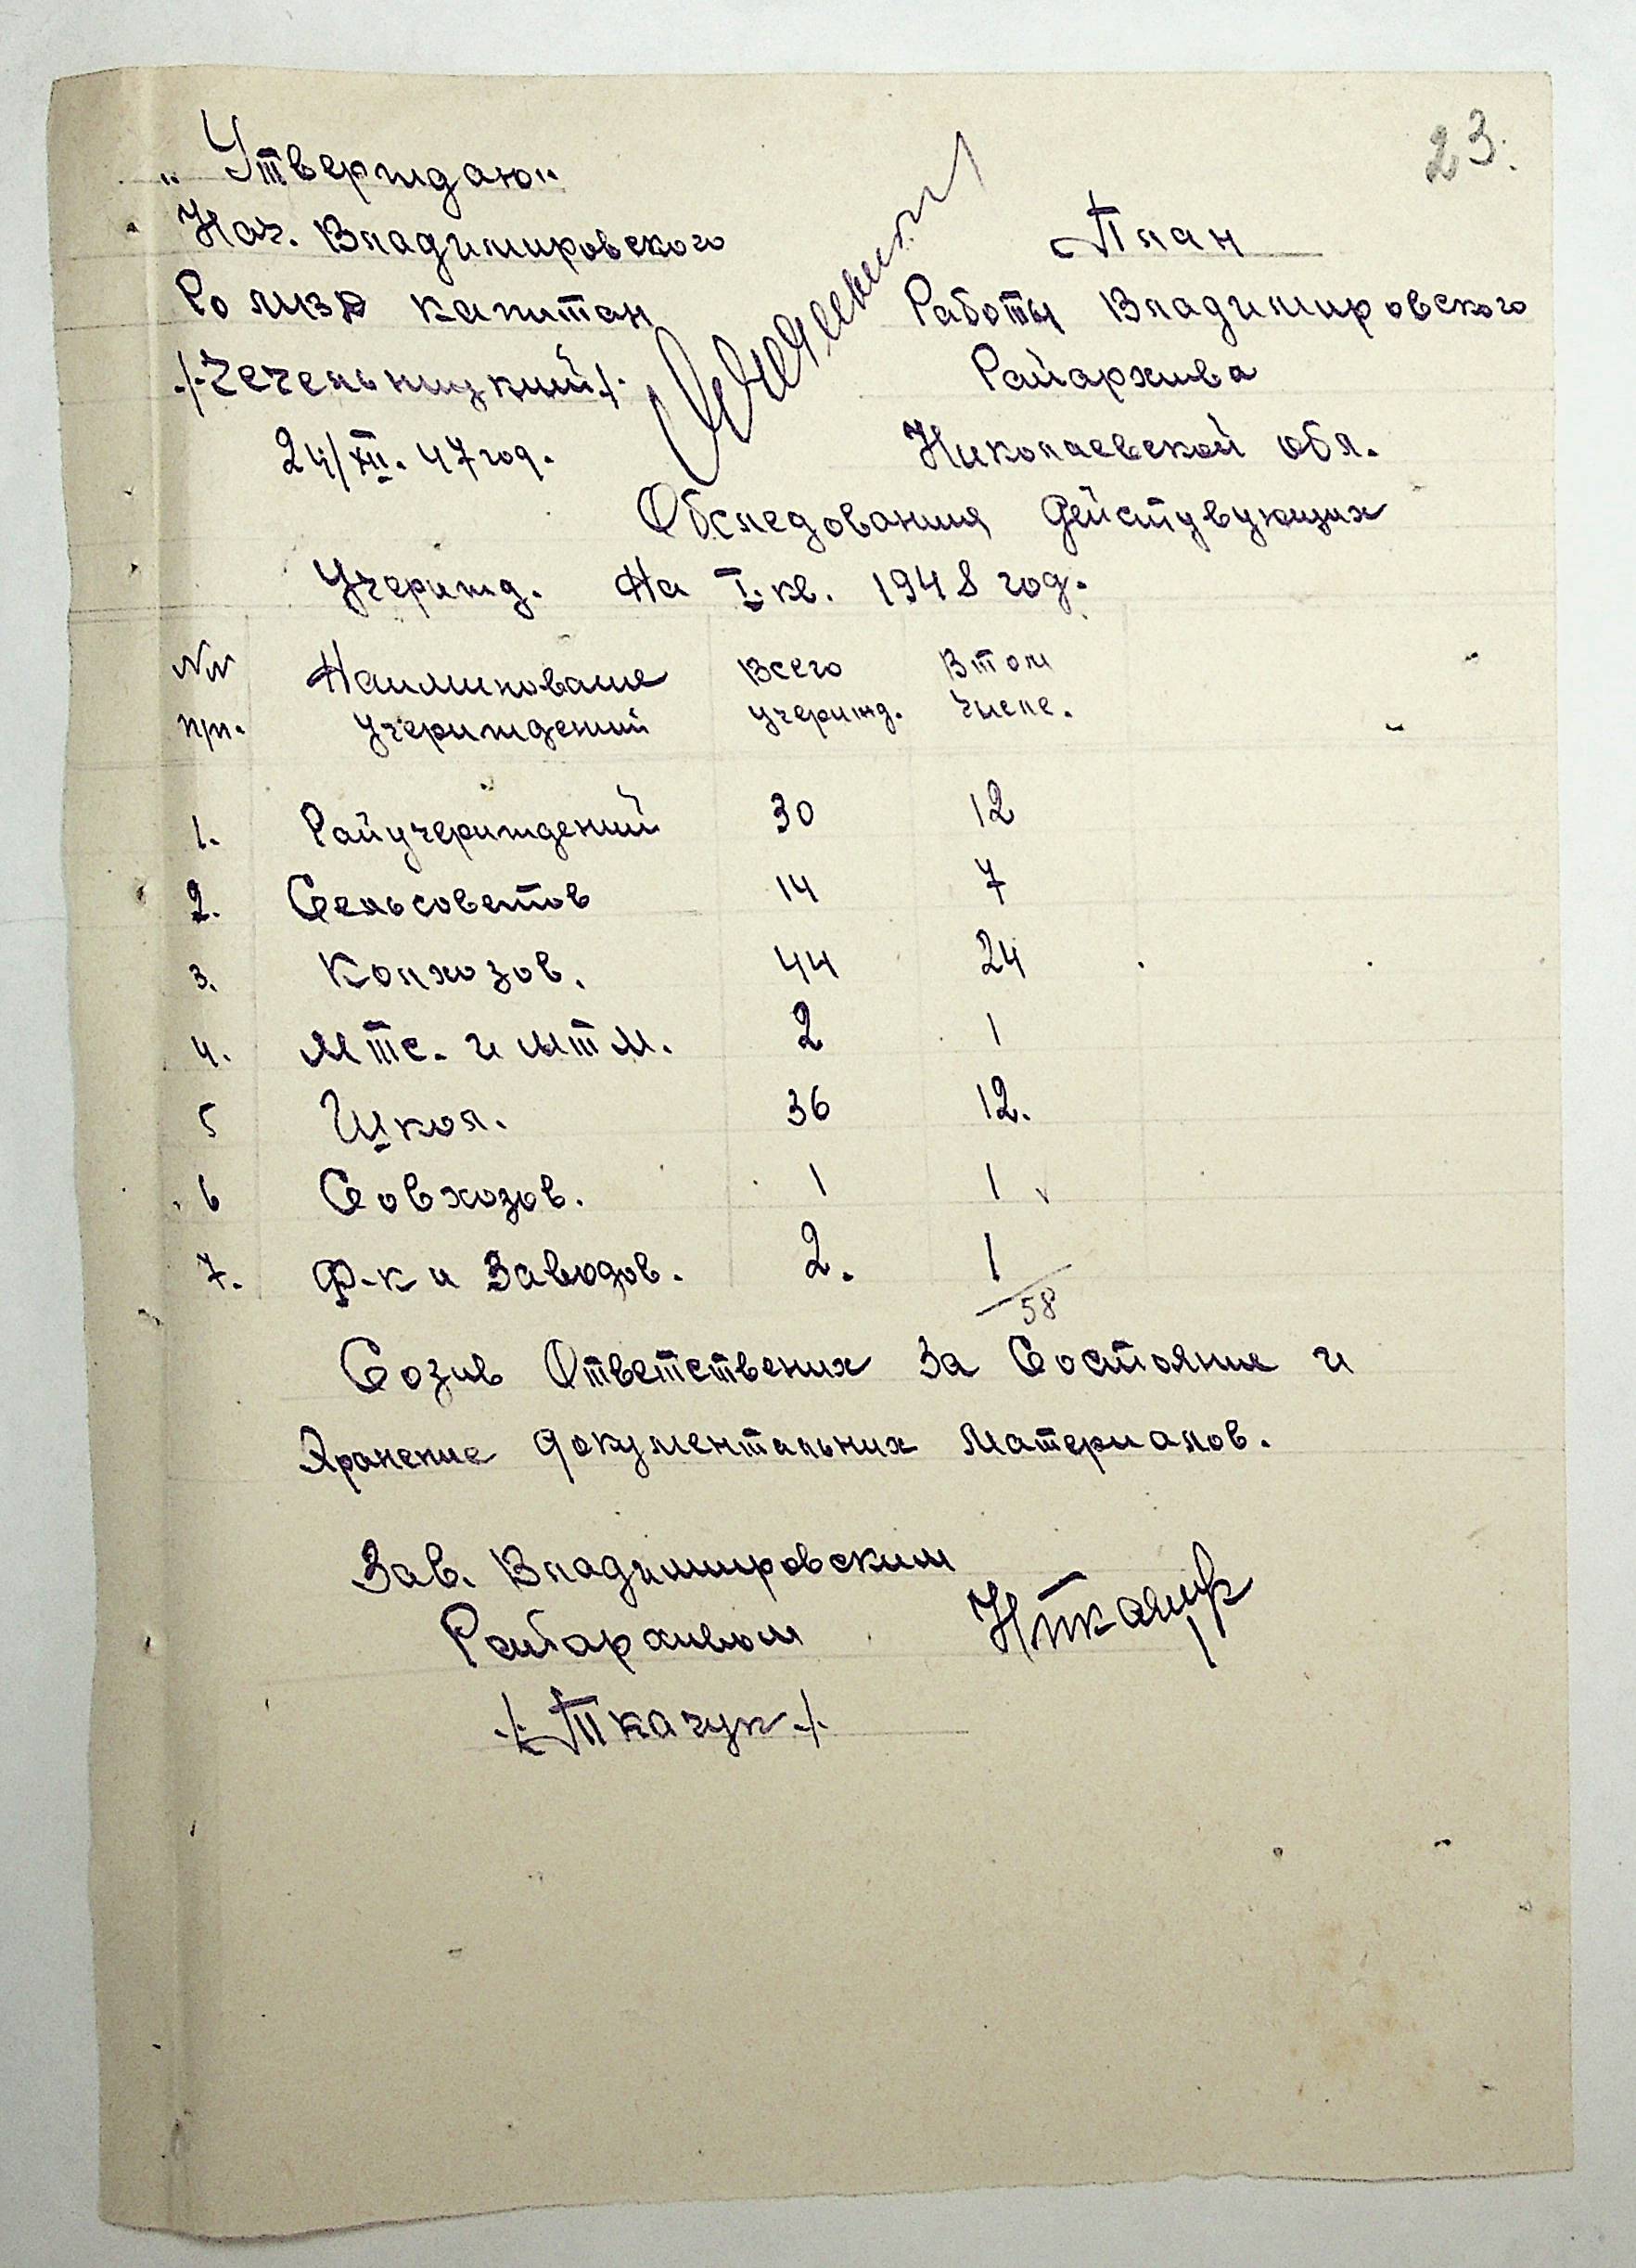 23.
„Утверждаю"
Нач. Владимировского
Ро МВД капитан
/Чечельницкий/
24/XII. 47 год.
План
Работы Владимировского
Райархива
Николаевской обл.
Обследования действующих
Учерижд. На I. кв. 1948 год.
NN пп. Наиминование учериждений Всего учерижд. В том числе.
1. Райучериждений 30 12
2. Сельсоветов 14 7
3. Колхозов. 44 24
4. мтс. и мтм. 2 1
5 Школ. 36 12.
6 Совхозов. 1 1
7. Ф-к и Заводов. 2. 1
58
Созив Ответствених За Состояние и
Хранение документальних материалов.
Зав. Владимировским
Райархивом
/Ткачук/